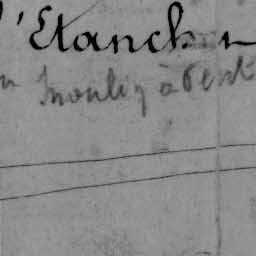 l'Etanch
moulin à vent